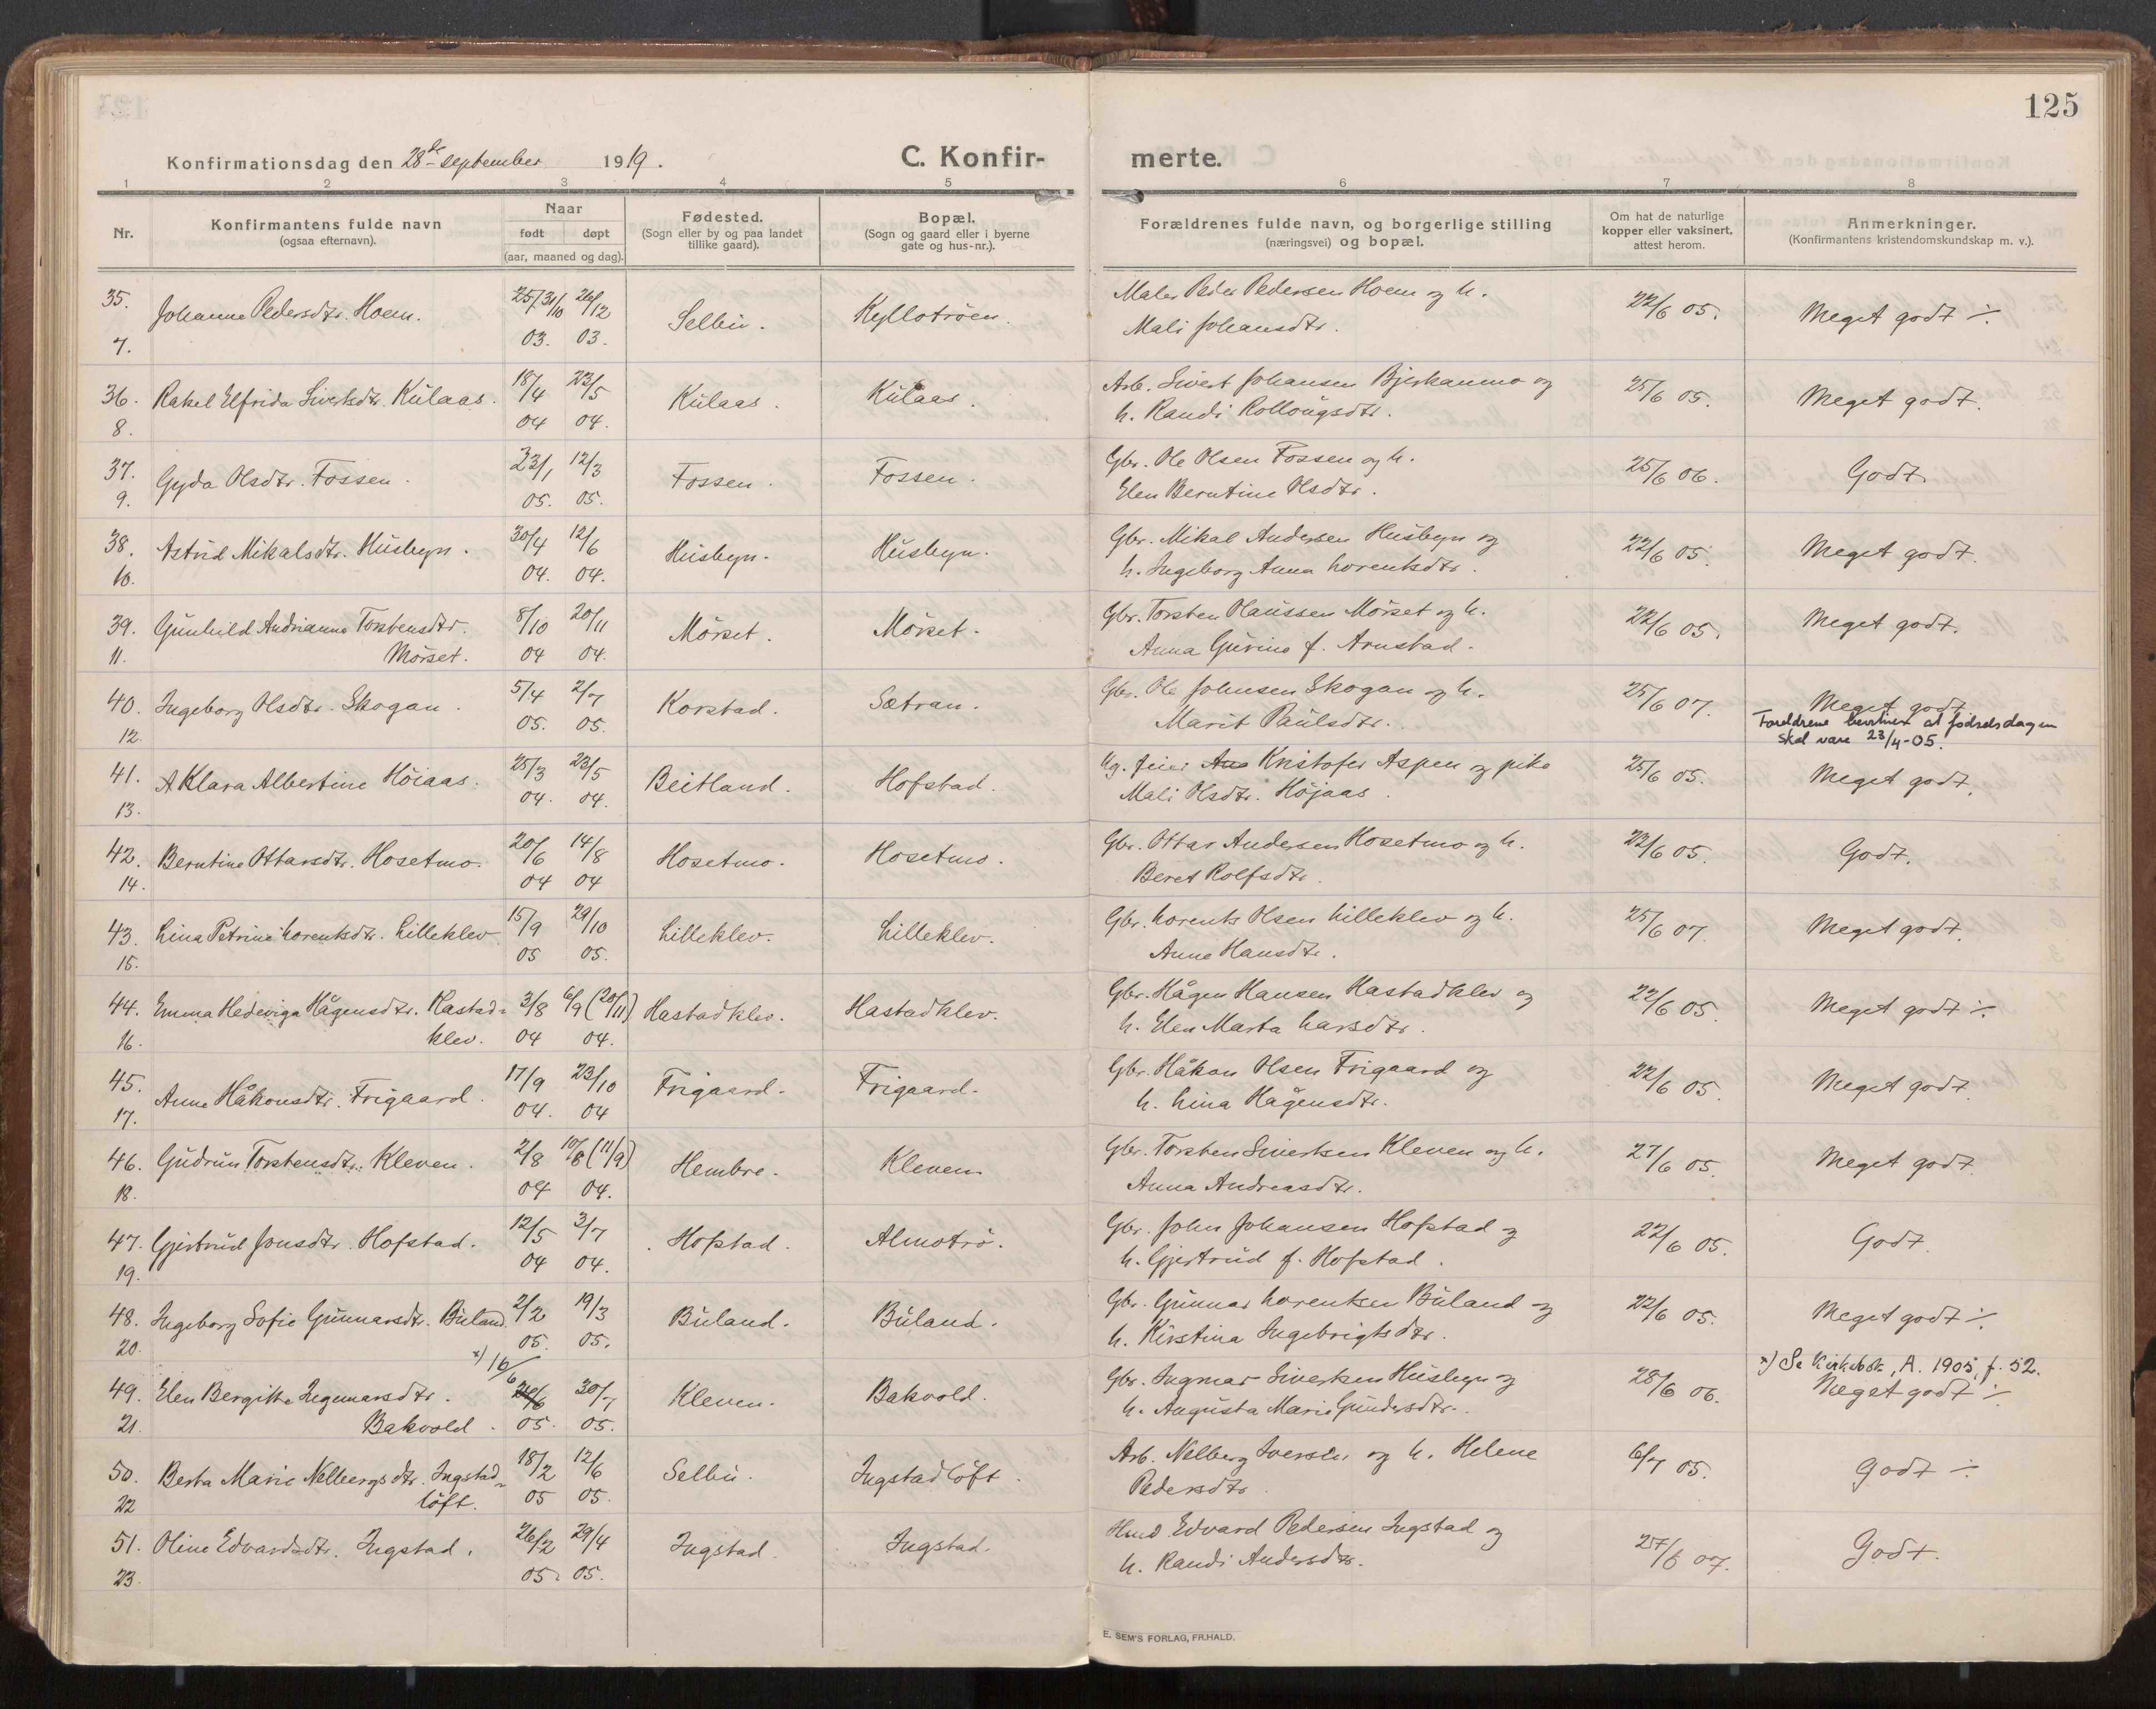 125
Konfirmationsdag den 28de september 1919.
C. Konfir-
merte.
1 2 3 4 5 6 7 8
Nr.
Konfirmantens fulde navn
(ogsaa efternavn).
Naar
født døpt
(aar, maaned og dag).
Fødested.
(Sogn eller by og paa landet
tillike gaard).
Bopæl.
(Sogn og gaard eller i byerne
gate og hus-nr.).
Forældrenes fulde navn, og borgerlige stilling
(næringsvei) og bopæl.
Om hat de naturlige
kopper eller vaksinert,
attest herom.
Anmerkninger.
(Konfirmantens kristendomskundskap m. v.).
35. Johanne Pedersdtr. Hoem. 25/31/10 26/12 Selbu. Kyllotröen. Maler Peder Pedersen Hoem og h. 22/6 05. Meget godt ÷.
7. 03. 03. Mali Johansdtr.
36. Rakel Elfrida Sivertsdtr. Kulaas. 18/4 23/5 Kulaas. Kulaas. Arb. Sivert Johansen Bjerkanmo og 25/6 05. Meget godt.
8. 04 04. h. Randi Rollougsdtr.
37. Gyda Olsdtr. Fossen. 23/1 12/3 Fossen. Fossen. Gbr. Ole Olsen Fossen og h. 25/6 06. Godt.
9. 05. 05. Elen Berntine Olsdtr.
38. Astrid Mikalsdtr. Husbyn. 30/4 12/6 Husbyn. Husbyn. Gbr. Mikal Andersen Husbyn og 22/6 05. Meget godt.
10. 04. 04. h. Ingeborg Anna Lorentsdtr.
39. Gunhild Andrianna Torstensdtr. 8/10 20/11 Mörset. Mörset. Gbr. Torsten Olaussen Mörset og h. 22/6 05. Meget godt.
11. Mörset. 04 04. Anna Gurine f. Arnstad.
40. Ingeborg Olsdtr. Skogan. 5/4 2/7 Korstad. Sætran. Gbr. Ole Johnsen Skogan og h. 25/6 07. Meget godt.
12. 05. 05. Marit Paulsdtr. Foreldrene at fødselsdagen
skal være 23/4-05.
41. A Klara Albertine Höiaas. 25/3 23/5 Beitland. Hofstad. Ug. feier Kristofer Aspen og pike 25/6 05. Meget godt.
13. 04. 04. Mali Olsdtr. Höjaas.
42. Berntine Ottarsdtr. Hosetmo. 20/6 14/8 Hosetmo. Hosetmo. Gbr. Ottar Andersen Hosetmo og h. 23/6 05. Godt.
14. 04 04 Beret Rolfsdtr.
43. Lina Petrine Lorentsdtr. Lilleklev 15/9 29/10 Lilleklev. Lilleklev. Gbr. Lorents Olsen Lilleklev og h. 25/6 07. Meget godt.
15. 05 05. Anne Hansdtr.
44. Emma Hedeviga Hågensdtr. Hastad- 3/8 6/9 (20/11) Hastadklev. Hastadklev. Gbr. Hågen Hansen Hastadklev og 22/6 05. Meget godt ÷.
16. klev. 04 04. h. Elen Marta Larsdtr.
45. Anne Håkonsdtr. Frigaard. 17/9 23/10 Frigaard. Frigaard. Gbr. Håkon Olsen Frigaard og 22/6 05. Meget godt.
17. 04. 04 h. Lina Hågensdtr.
46. Gudrun Torstensdtr. Kleven. 2/8 10/8 (11/9) Hembre. Kleven. Gbr. Torsten Sivertsen Kleven og h. 27/6 05. Meget godt.
18. 04 04. Anna Andreasdtr.
47. Gjertrud Jonsdtr. Hofstad. 12/5 3/7 Hofstad. Almotrö. Gbr. John Johansen Hofstad og 22/6 05. Godt.
19. 04 04. h. Gjertrud f. Hofstad.
48. Ingeborg Sofie Gunnarsdtr. Buland. 2/2 19/3 Buland. Buland. Gbr. Gunnar Lorentsen Buland og 22/6 05. Meget godt ÷.
20. 05. 05. h. Kirstina Ingebrigtsdtr.
x) 16/6 x) Se Kirkebok, A. 1905, f. 52.
49. Elen Bergitte Ingmarsdtr. 24/6 30/7 Kleven. Bakvold. Gbr. Ingmar Sivertsen Husbyn og 28/6 06. Meget godt ÷
21. Bakvold. 05. 05. h. Augusta Marie Gundersdtr.
50. Berta Marie Nelbergsdtr. Ingstad- 18/2 12/6 Selbu. Ingstadlöft. Arb. Nelberg Iversen og h. Helene 6/7 05. Godt ÷
22 löft. 05 05. Pedersdtr.
51. Oline Edvardsdtr. Ingstad. 26/2 29/4 Ingstad. Ingstad. Hmd Edvard Pedersen Ingstad og 25/6 07. Godt.
23. 05. 05. h. Randi Andersdtr.
E. SEM'S FORLAG, FR.HALD.